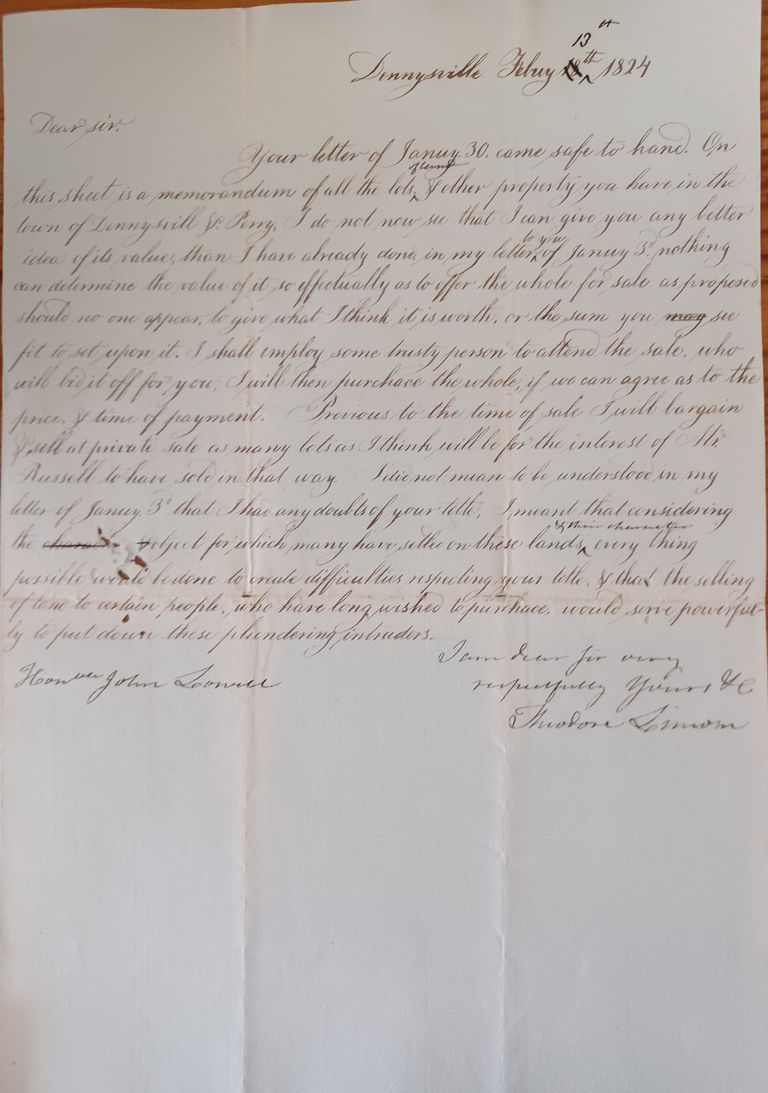 Dennysville Febuy 13th 1824
Dear sir.
Your letter of Januy. 30. came safe to hand. On
this sheet is a memorandum of all the lots of land & other property you have in the
town of Dennysvill & Perry, I do not now see that I can give you any better
idea of its value, than I have already done, in my letter to you of Januy 3d. nothing
can determine the value of it, so effectually as to offer the whole for sale as proposed
should no one appear, to give what I think it is worth, or the sum you may see
fit to set upon it. I shall employ some trusty person to attend the sale, who
will bid it off for you, I will then purchace the whole, if we can agree as to the
price, & time of payment. Previous to the time of sale I will bargain
& sell at private sale as many lots as I think will be for the interest of Mr.
Russell to have sold in that way. I did not mean to be understood in my
letter of Januy 3d that I had any doubts of your title, I meant that considering
the object for which many have settled on these lands & their character every thing
possible would be done to create difficulties respecting your title, & that the selling
of land to certain people, who have long wished to purchace, would serve powerful-
ly to put down these plundering intruders.
I am dear Sir very
respectfully Yours &c
Theodore Lincoln
Honble John Lowell